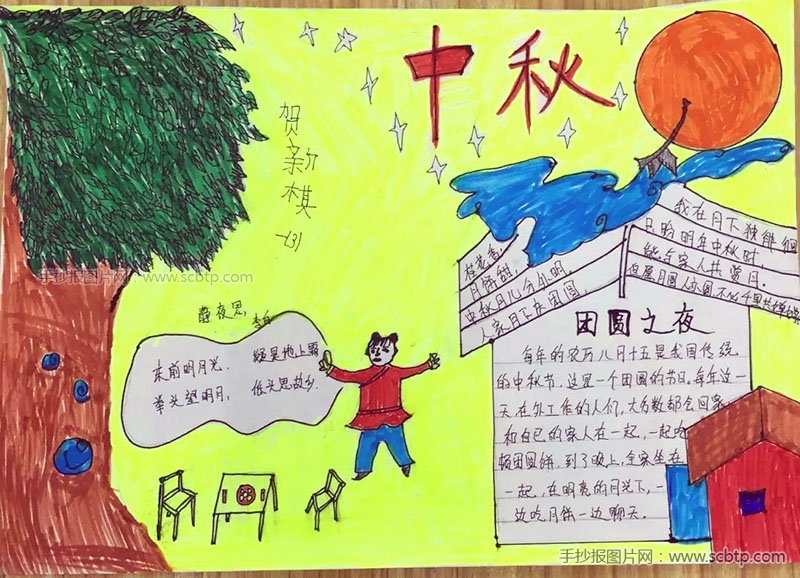 中秋
贺新棋
一(3)
手抄报图片网：www.scbtp.com
静夜思
李白
床前明月光, 疑是地上霜
举头望明月, 低头思故乡.
桂花香,
月饼甜
中秋月儿分外明,
人家月下庆团圆,
我在月下独徘徊
只盼明年中秋时
能与家人共赏月.
但愿月圆人亦圆
团圆之夜
每年的农历八月十五是我国传统
的中秋节,这是一个团圆的节日,每年这一
天在外工作的人们,大多数都会回家
和自己的家人在一起,一起吃
顿团圆饼,到了晚上,全家坐在
一起,在明亮的月光下,一
边吃月饼一边聊天.
手抄报图片网：www.scbtp.com